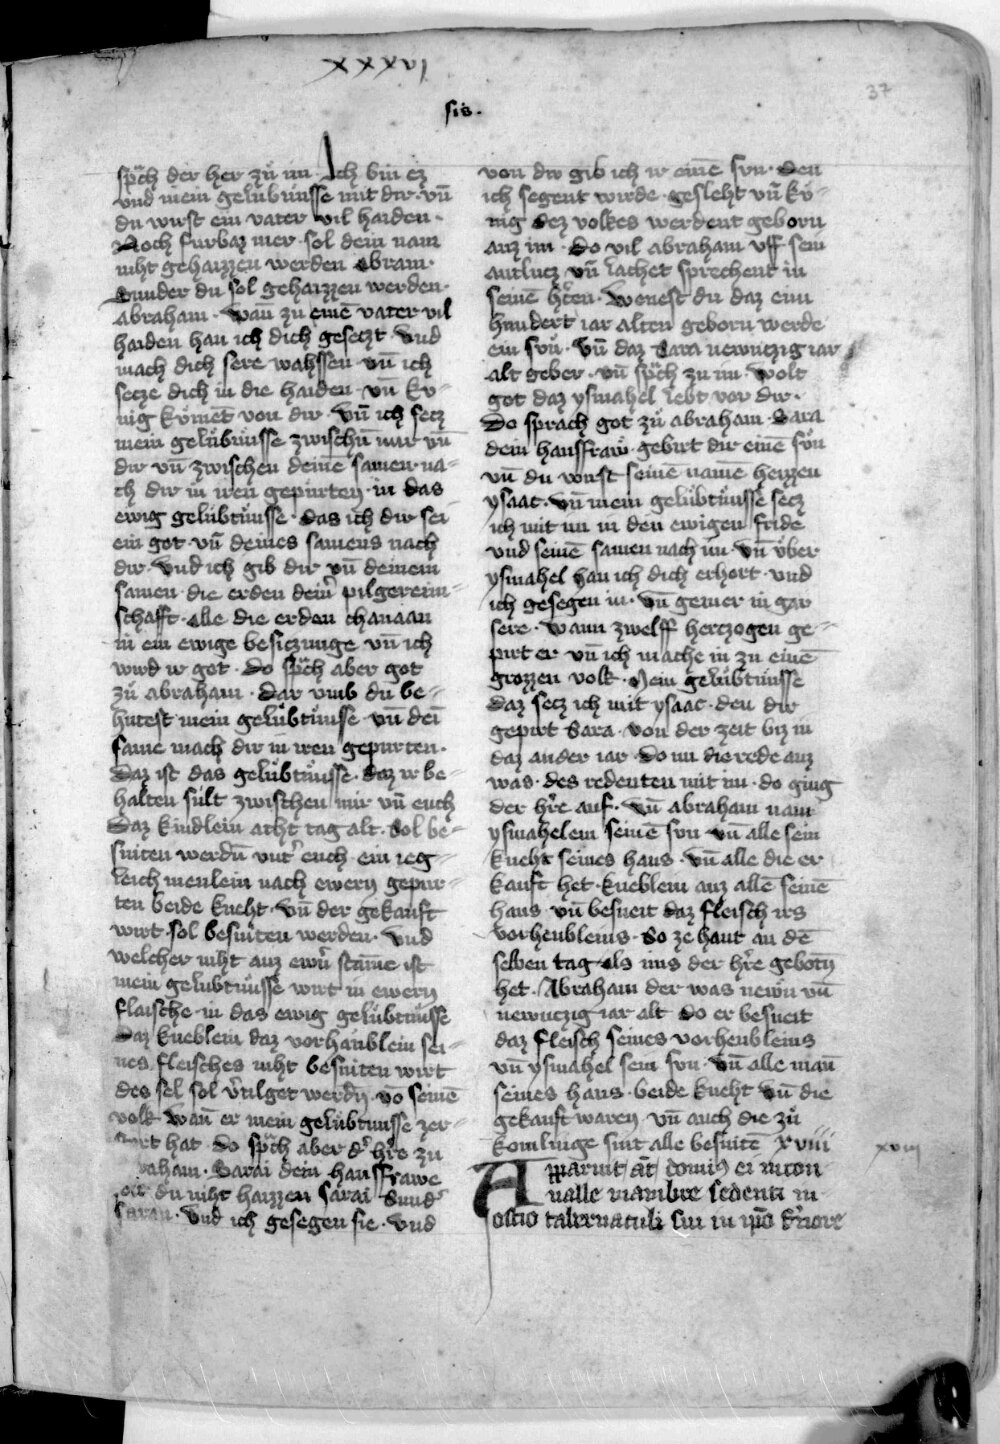 xxxvi
37
sis.
sp̃ch der her zů im · Ich bin ez
vnd mein gelubnusse mit dir · vn̄
du wirst ein vater vil haiden ·
Noch furbaz mer · sol dein nam
niht gehaizzen werden Abram ·
Sunder du sol gehaizzen werden ·
Abraham · wan zu eine̅ vater vil
haiden han ich dich geseczt · Vnd
mach dich sere wahssen vn̄ ich
secze dich in die haiden · vn̄ ku=
nig kůment von dir · Vn̄ ich secz
mein gelůbtnůsse zwischn̄ mir vn̄
dir vn̄ zwischen deine̅ samen na=
ch dir in iren gepurten · in das
ewig gelůbtnůsse · das ich dir sei
ein got vn̄ deines samens nach
dir · vnd ich gib dir vn̄ deinem
samen · die erden deinˀ pilgereim=
schafft · Alle die erden chanaan
in ein ewige besiczunge vn̄ ich
wird ir got · Do sp̃ch aber got
zů abraham · Dar vmb du be=
hutest mein gelůbtnůsse · vn̄ dein̅
same nach dir in iren gepurten ·
Daz ist das gelůbtnůsse · daz ir be=
halten sult zwischen mir vn̄ euch
Daz kindlein acht tag alt · Sol be=
sniten werdn̄ vntˀ euch · ein ieg=
leich menlein nach ewern gepur=
ten beide kneht · vn̄ der gekauft
wirt · sol besniten werden · Vnd
welcher niht auz ewrˀ stam̅e ist
mein gelubtnůsse wirt in ewern
flaische · in das ewig gelůbtnusse
Daz kneblein daz vorhaublein sei=
nes fleisches niht besniten wirt
des sel sol vˀtilget werdn̄ · vō seine̅
volk wan̄ er mein gelůbtnusse zer=
hat · do sp̃ch aber dˀ hˀre zu
Sarai dein hausfrawe
du niht haizzen sarai Sundˀ
saran · Vnd ich gesegen sie · vnd
von dir gib ich ir eine̅ sun · Den
ich segent wirde · gesleht vn̄ ků=
nig dez volkes werdent geborn
auz im · Do vil abraham vff sein
antlucz vn̄ lachet sprechent in
seine̅ hˀczen · Wenest du daz eim
hundert iar alten geborn werde
ein sůn · Vn̄ daz Sara newnczig iar
alt geber · vn̄ sp̃ch zu im · wolt
got daz ysmahel lebt vor dir ·
Do sprach got zů abraham · Sara
dein hausfraw · gebirt dir eine̅ sůn
vn̄ du wirst seine̅ name̅ heizzen
ysaac · vn̄ mein gelůbtnůsse secz
ich mit im in den ewigen fride
vnd seine̅ samen nach im · vn̄ vber
ysmahel han ich dich erhort · vnd
ich gesegen in · vn̄ gemer in gar
sere · Wann zwelff herczogen ge=
pirt er vn̄ ich mache in zu eine̅
grozzen volk · Mein gelůbtnůsse
daz secz ich mit ysaac · den dir
gepirt Sara · von der zeit biz in
daz ander iar · Do im die rede auz
was · des redenten mit im · do ging
der hˀre auf · vn̄ abraham nam
ysmahelem seine̅ sun vn̄ alle sein
kneht seines haus · vn̄ alle die er
kauft het · kneblein auz alle̅ seine̅
haus vn̄ besneit daz fleisch irs
vorheubleins · So ze hant an de̅
selben tag als ims der hˀre gebotn̄
het · Abraham der was newn vn̄
newnczig iar alt do er besneit
daz fleisch seines vorheubleins
vn̄ ysmahel sein sun · vn̄ alle man̄
seines haus · beide kneht vn̄ die
gekauft waren vn̄ auch die zů
komlinge sint alle besnite̅ xviii
xviii
Apparuit at̄ domiꝰ ei in con
ualle mambre sedenti in
ostio tabernaculi sui in ip̅o fˀuore